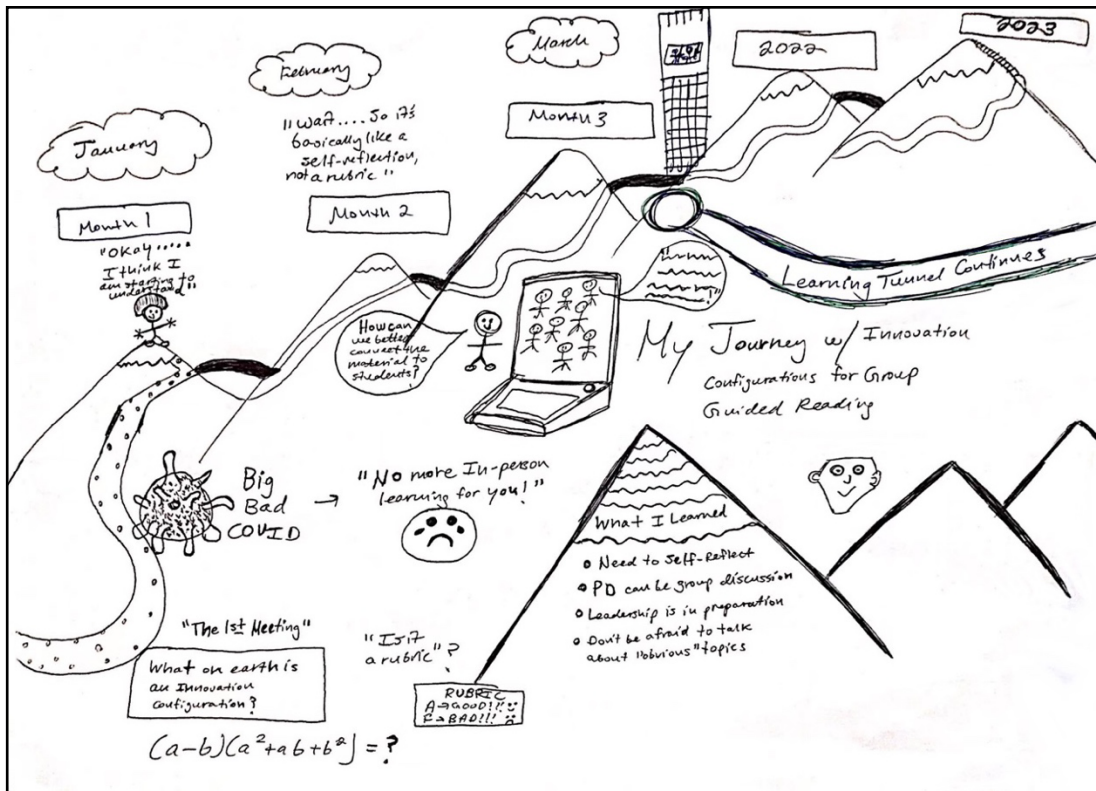 January
February
March
2022
2023
Month 1
Month 2
Month 3
"Okay.....
I think I
am starting to
understand"
"Wait....So it's
basically like a
self-reflection,
not a rubric"
How can
we better
connect the
material to
students?
Learning Tunnel Continues
My Journey w/ Innovation
Configurations for Group
Guided Reading
Big
Bad
COVID
"No more In-person
learning for you!"
What I Learned
Need to self-Reflect
PD can be group discussion
Leadership is in preparation
Don't be afraid to talk
about "obvious" topics
"The 1st Meeting"
What on earth is
an Innovation
Configuration?
"Is it
a rubric"?
RUBRIC
A→GOOD!!!
F→BAD!!!
(a-b)(a²+ab+b²)=?